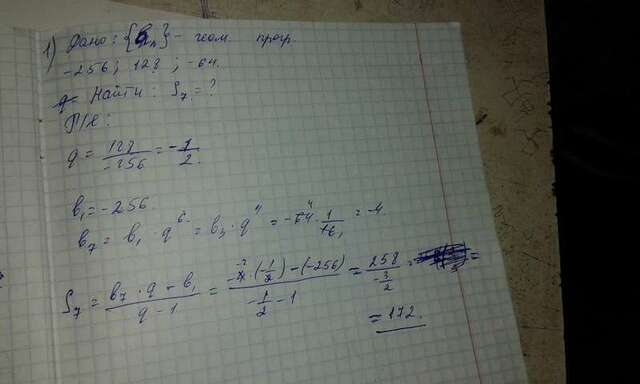 1) Дано: {bₙ} - геом. прогр.
-256; 128; -64.
Найти: S₇ = ?
Р/е:
q = 128/-256 = -1/2.
b₁ = -256.
b₇ = b₁ · q⁶ = b₃ · q⁴ = -64 · 1/16 = -4.
S₇ = (b₇ · q - b₁)/(q - 1) = (· (-1/2) - (-256))/(-1/2 - 1) = 258/(-3/2) = =
= 172.